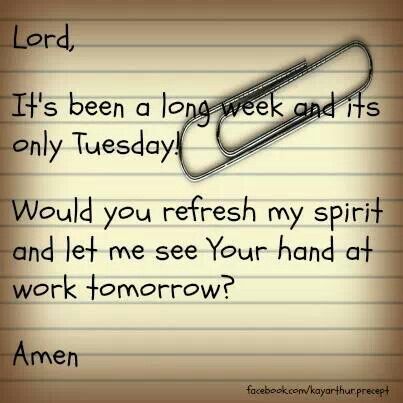 Lord,
It's been a long week and its
only Tuesday!
Would you refresh my spirit
and let me see Your hand at
work tomorrow?
Amen
facebook.com/kayarthur.precept